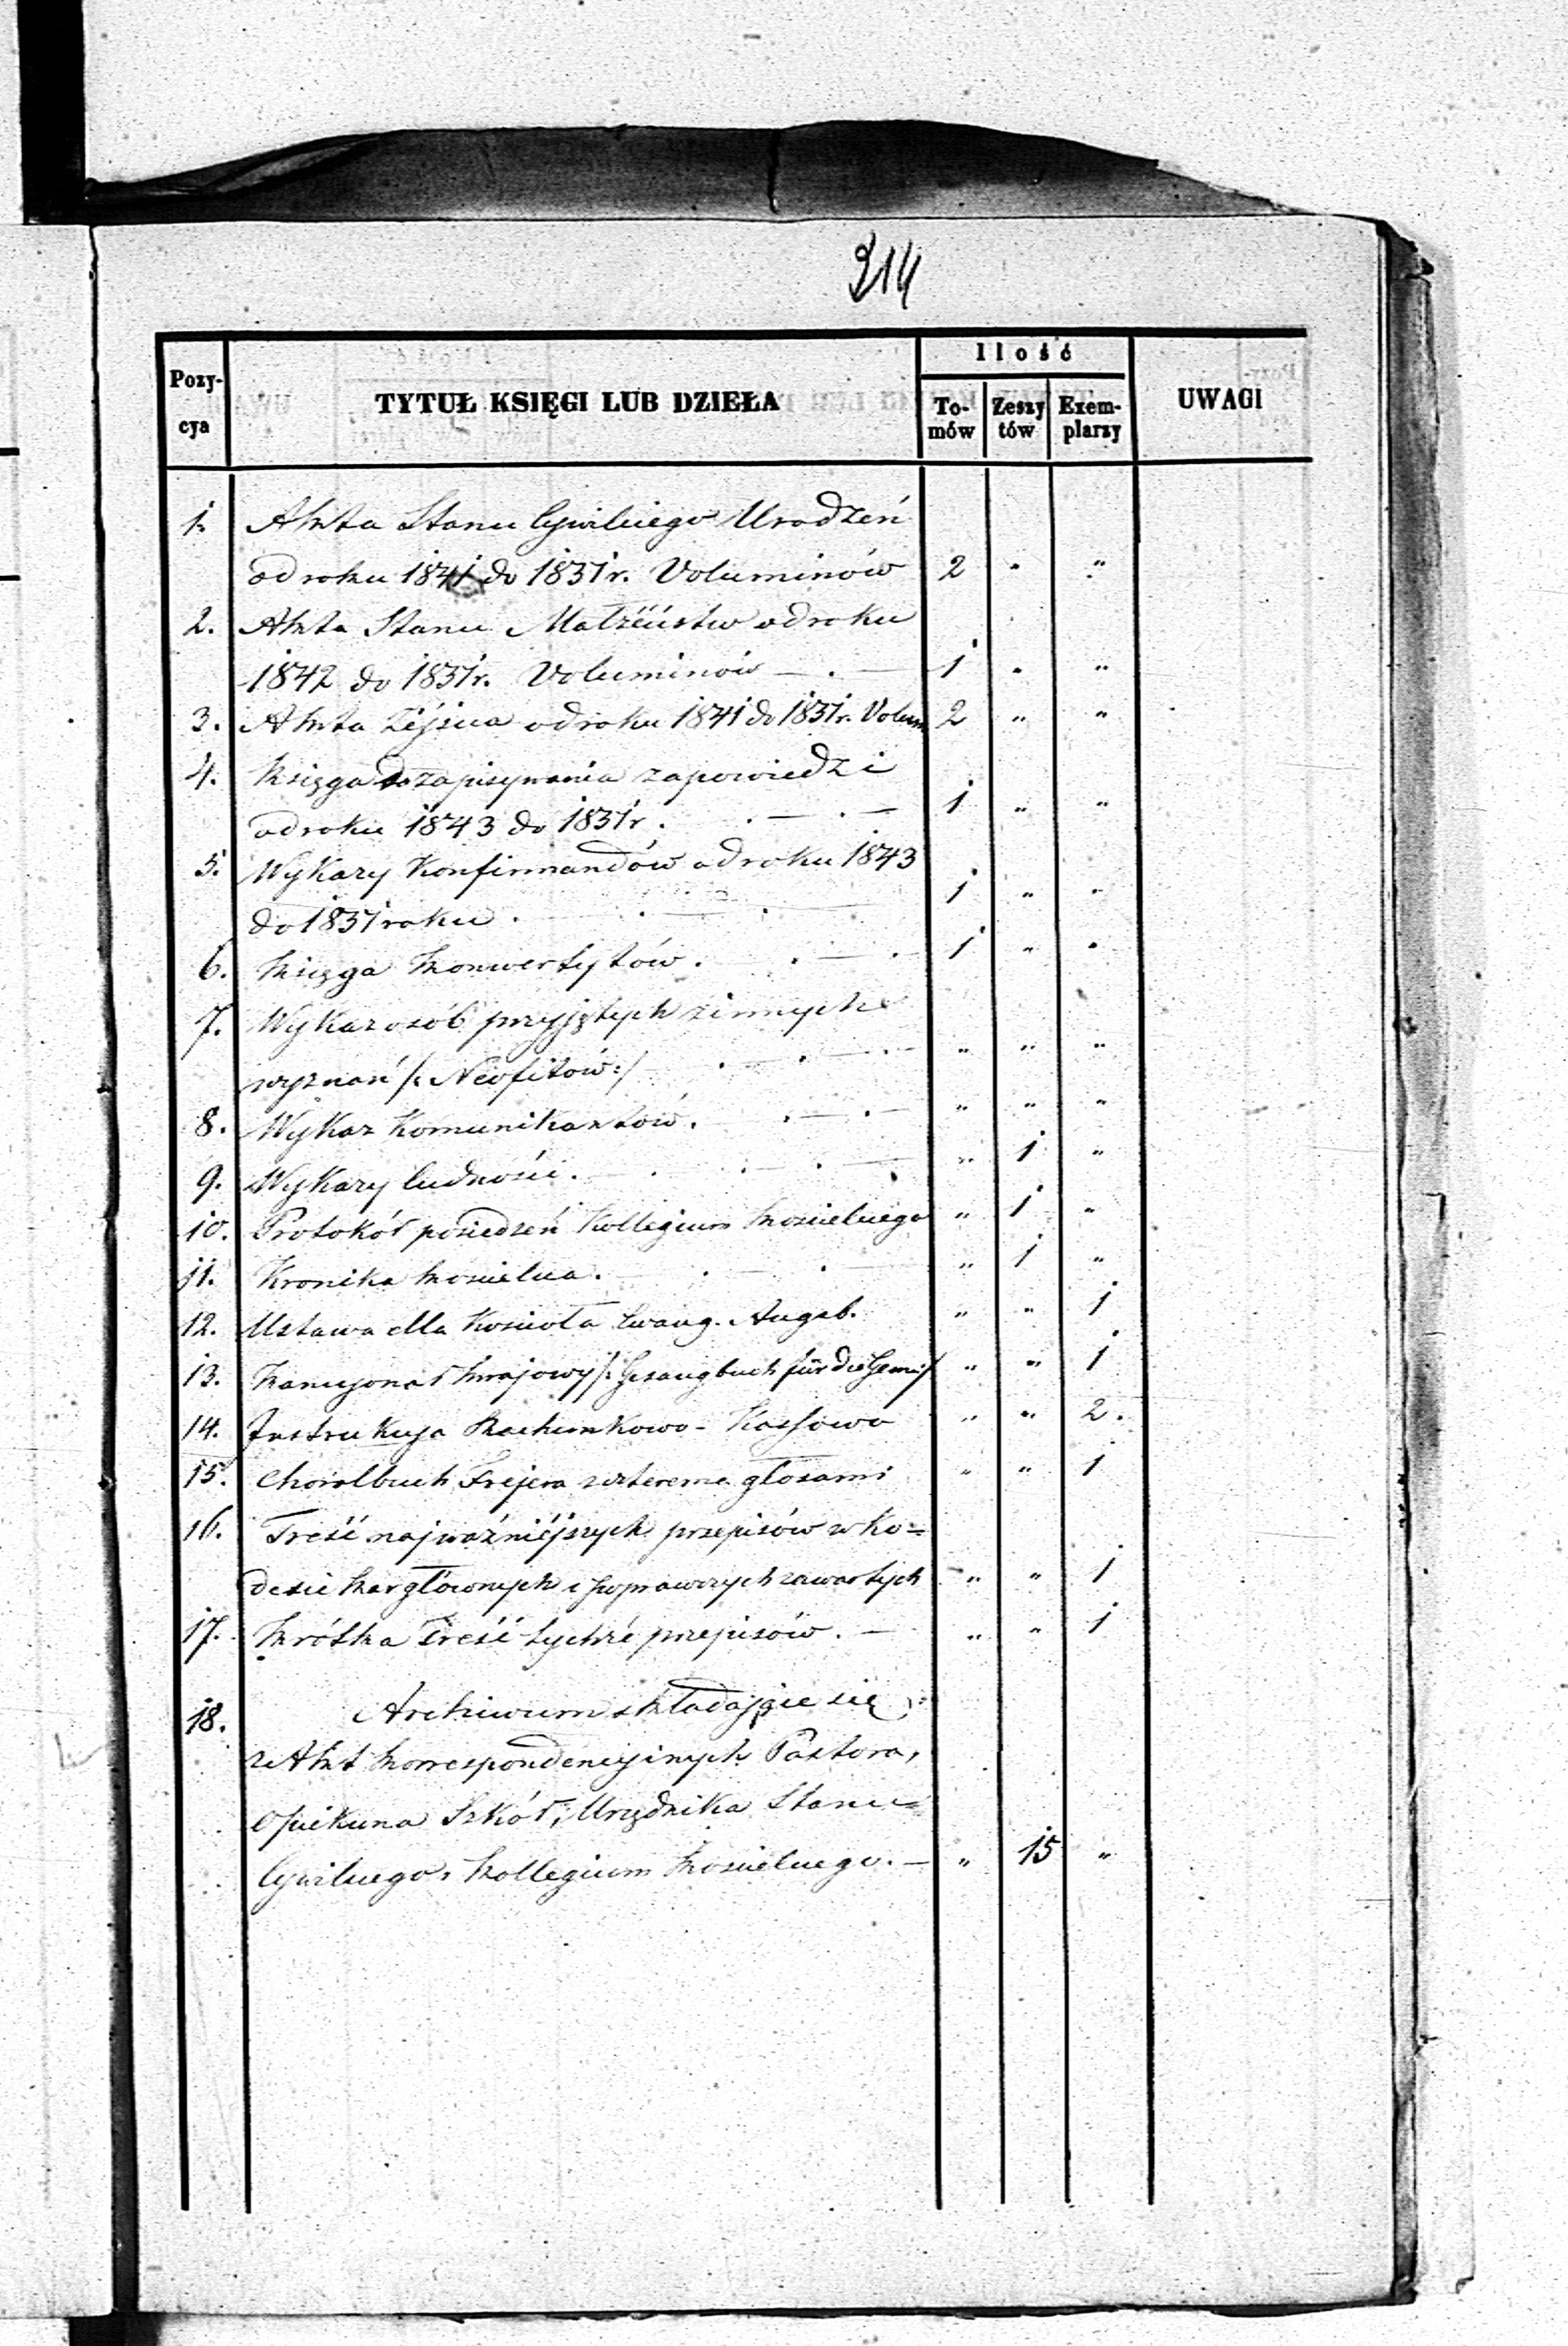 214
Pozy-
cya
TYTUŁ KSIĘGI LUB DZIEŁA
Ilość
To-
mów
Zeszy
tów
Exem-
plarzy
UWAGI
1. Akta Stanu Cywilnego Urodzeń
od roku 1841 do 1851 r. Voluminów 2 " "
2. Akta Stanu Małżeństw od roku
1842 do 1851 r. Voluminów — . — 1 " "
3. Akta Zejścia od roku 1841 do 1851 r. Volum 2 " "
4. Księga do zapisywania zapowiedzi
od roku 1843 do 1851 r. . — . — 1 " "
5. Wykary Konfirmandów od roku 1843
do 1851 roku . — . — . — 1 " "
6. Księga Konwertytów . . — . 1 " "
7. Wykaz osób przyjętych z innych
wyznań /: Neofitów :/ . — . — " " "
8. Wykaz Komunikantów . . — . — " " "
9. Wykazy ludności . — . . — . — " 1 "
10. Protokół posiedzeń Kollegium Kościelnego " 1 "
11. Kronika Kościelna . — . — . — " 1 "
12. Ustawa dla Kościoła Ewang. Augsb. " " 1
13. Kancyonał Krajowy /: Gesangbuch für die Gem :/ " " 1
14. Instrukcya Rachunkowo-Kassowa " " 2.
15. Choralbuch Frejera z czterema głosami " " 1
16. Treść najważniejszych przepisów w Ko=
desie Kar głównych i poprawczych zawartych " " 1
17. Krótka Treść tychże przepisów . — " " 1
18. Archiwum składające się
z Akt Korrespondencyinych Pastora,
Opiekuna Szkół, Urzędnika Stanu=
Cywilnego, Kollegium Kościelnego. — " 15 "